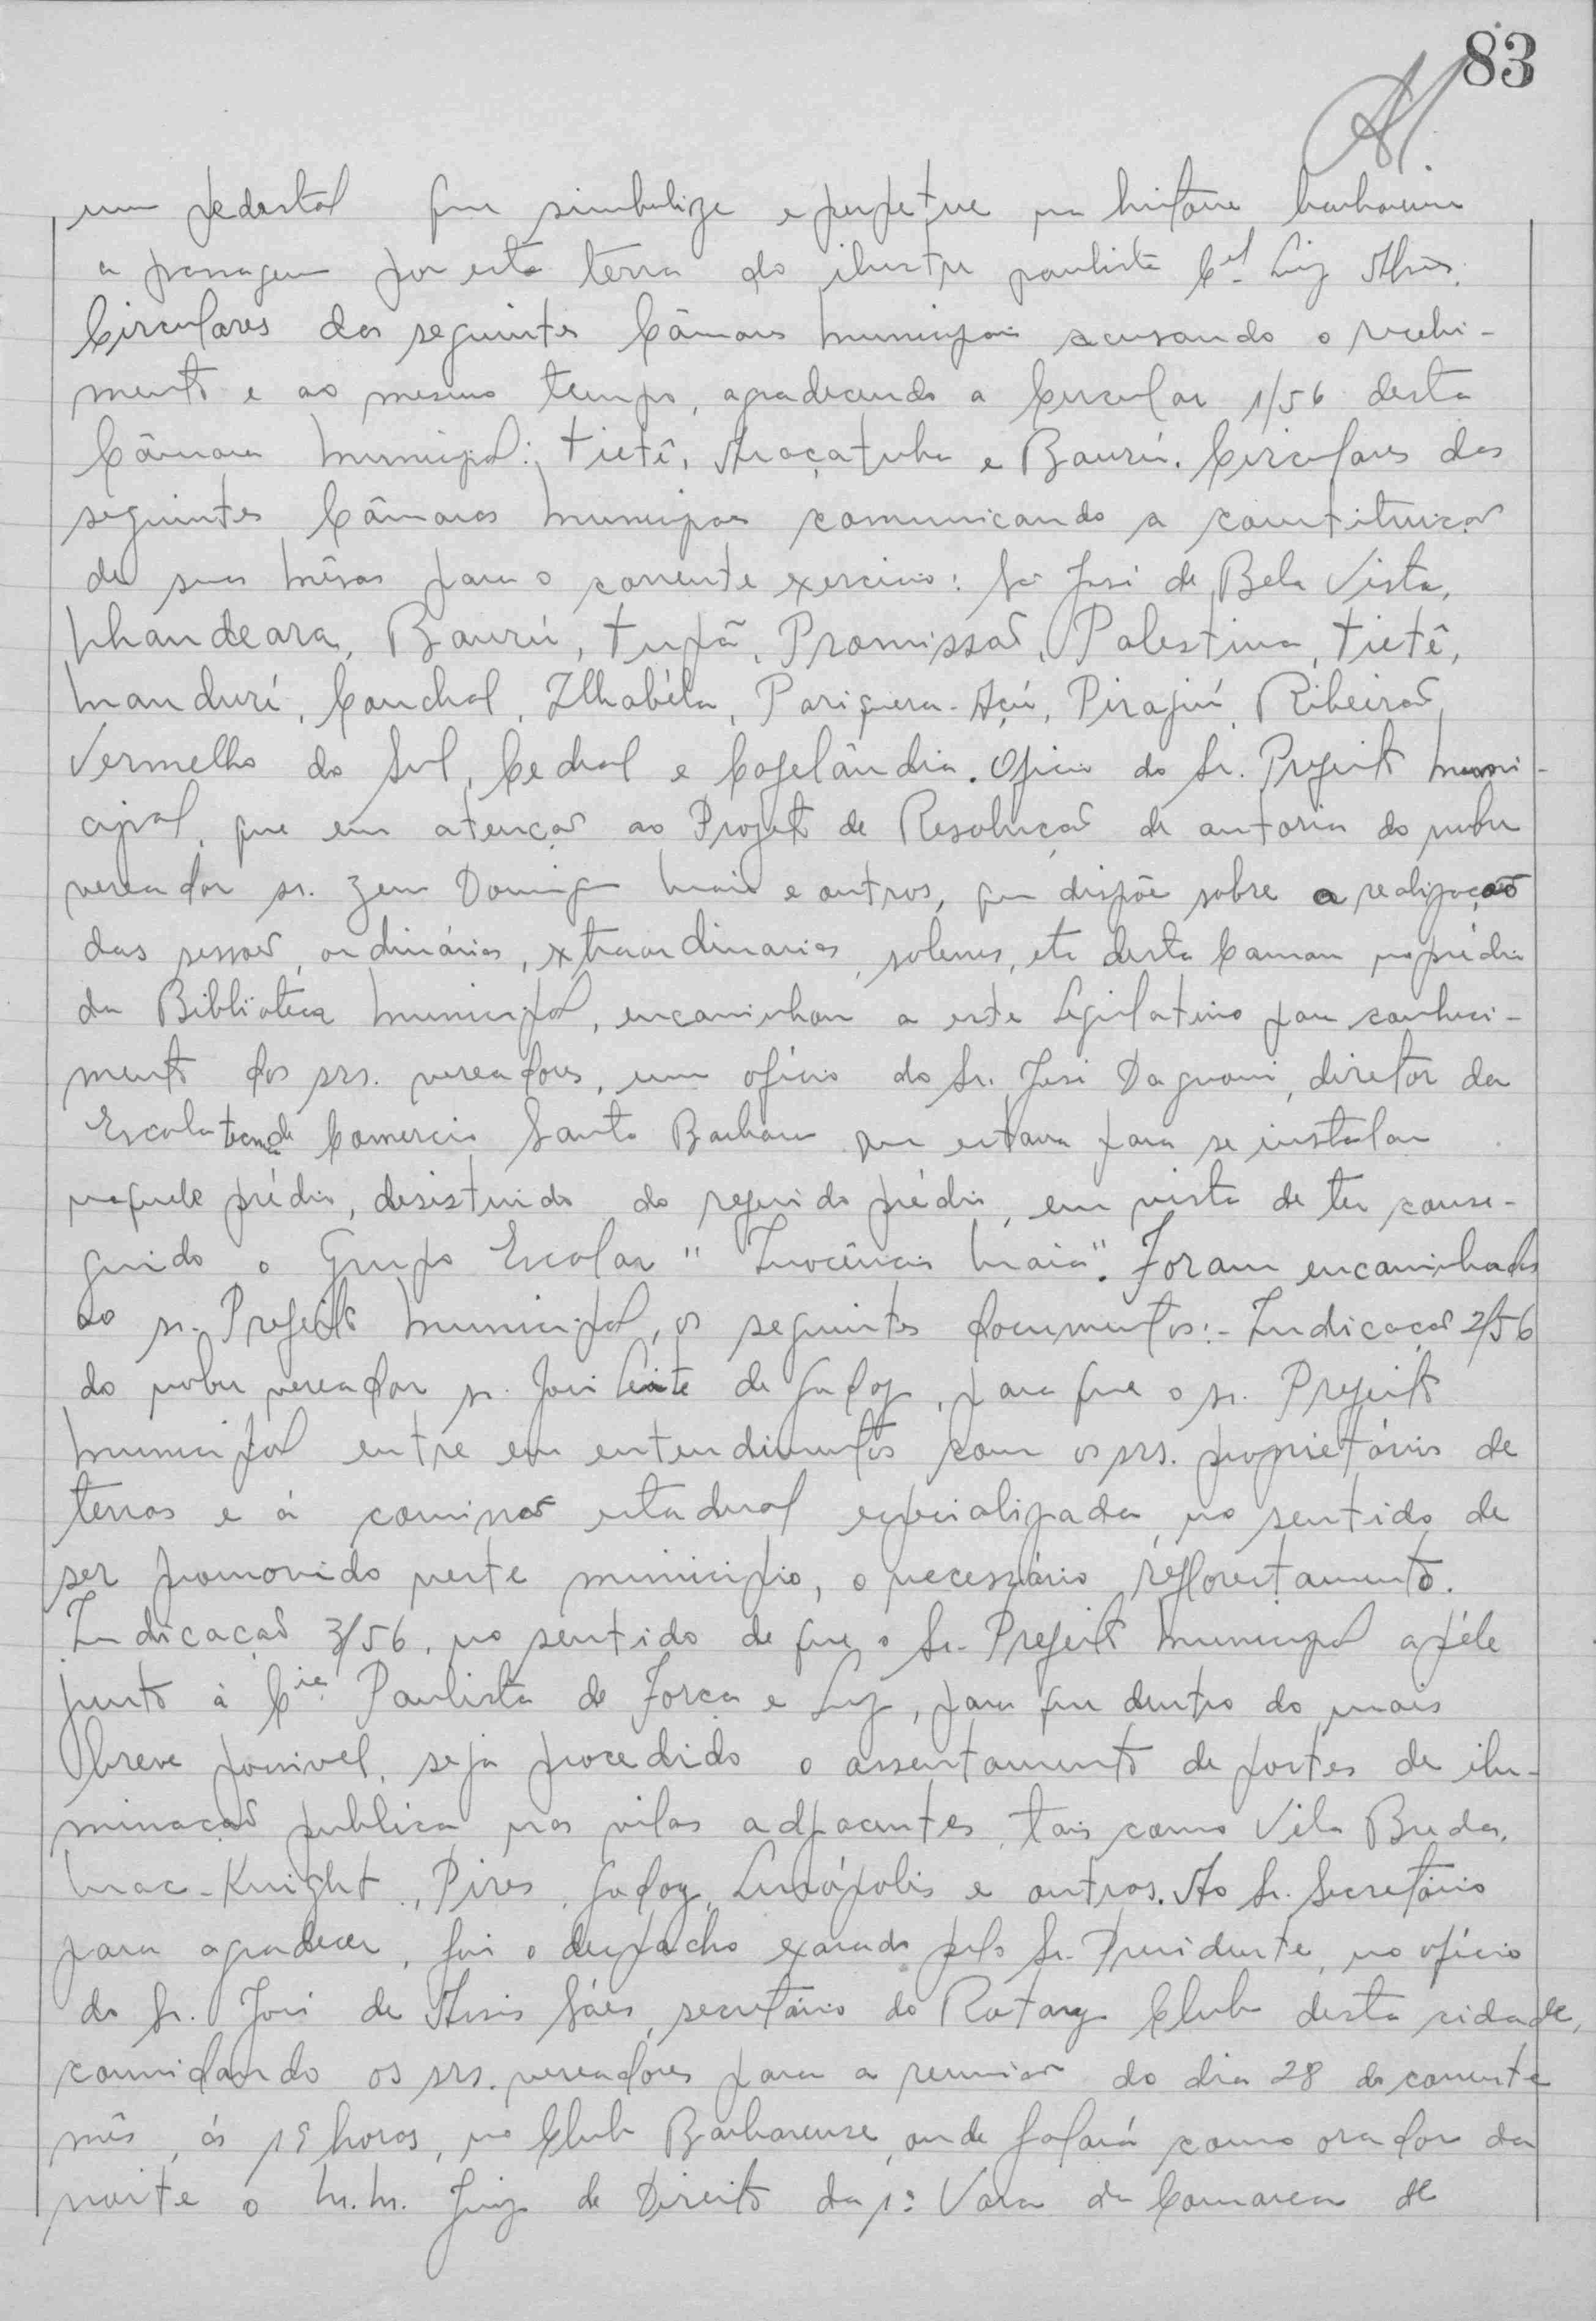 83
um pedestal que simbolize e perpetue na história barbarense
a passagem por esta terra do ilustre paulista Cel. Luiz Alves.
Circulares das seguintes Câmaras Municipais acusando o recebi-
mento e ao mesmo tempo, agradecendo a Circular 1/56 desta
Câmara Municipal: Tietê, Araçatuba e Baurú. Circulares das
seguintes Câmaras Municipais comunicando a constituição
de suas mêsas para o corrente exercicio: São José de Bela Vista,
Nhandeara, Baurú, Tupã, Promissão, Palestina, Tietê,
Mandurí, Conchal, Ilhabéla, Pariquera-Açú, Pirajuí, Ribeirão
Vermelho do Sul, Cedral e Cafelândia. Oficio do Sr. Prefeito Muni-
cipal, que em atenção ao Projeto de Resolução de autoria do nobre
vereador sr. Domingos Maia e outros, que dispõe sobre a realização
das sessões, ordinárias, extraordinarias, solenes, etc desta Camara no prédio
da Biblioteca Municipal, encaminhou a este Legislativo para conheci-
mento dos srs. vereadores, um oficio do Sr. José Dagnoni, diretor da
Escola Tecnica de Comercio Santa Barbara que estava para se instalar
naquele prédio, desistindo do referido prédio, em vista de ter conse-
guido o Grupo Escolar "Inocêncio Maia". Foram encaminhados
ao sr. Prefeito Municipal, os seguintes documentos:- Indicação 2/56
do nobre vereador sr. José Leite de Godoy, para que o sr. Prefeito
Municipal entre em entendimentos com os srs. proprietários de
terras e á comissão estadual especializada, no sentido de
ser promovido neste municipio, o necessário reflorestamento.
Indicação 3/56, no sentido de que o Sr. Prefeito Municipal apéle
junto á Cia Paulista de Força e Luz, para que dentro do mais
breve possivel, seja procedido o assentamento de postes de ilu-
minação publica nas vilas adjacentes, tais como Vila Breda,
Mac-Knight, Pires, Godoy, Linópolis e outras. Ao Sr. Secretário
para agradecer, foi o despacho exarado pelo Sr. Presidente, no ofício
do Sr. José de Assis Sáes, secretário do Rotary Club desta cidade,
convidando os srs. vereadores para a reunião do dia 28 do corrente
mês, ás 19 horas, no Club Barbarense, onde falará como orador da
noite o M.M. Juiz de Direito da 1ª Vara da Comarca de